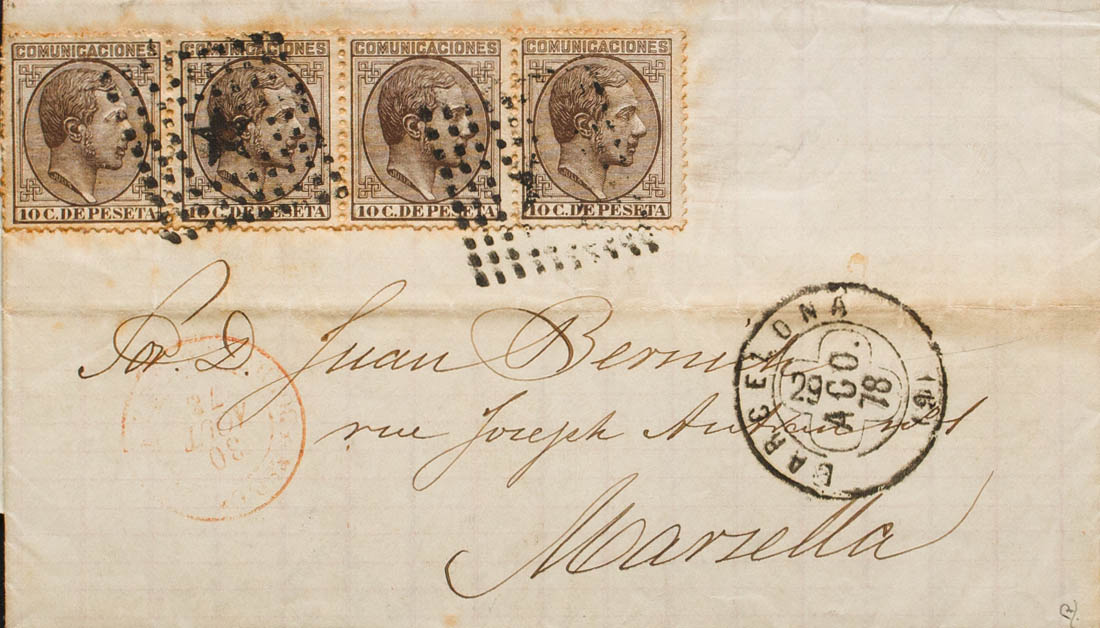 COMUNICACIONES COMUNICACIONES COMUNICACIONES COMUNICACIONES
10 C. DE PESETA 10 C. DE PESETA 10 C. DE PESETA 10 C. DE PESETA
BARCELONA
29 AGO. 78
Sor. D. Juan
30
AOUT
78
rue Joseph
Marsella